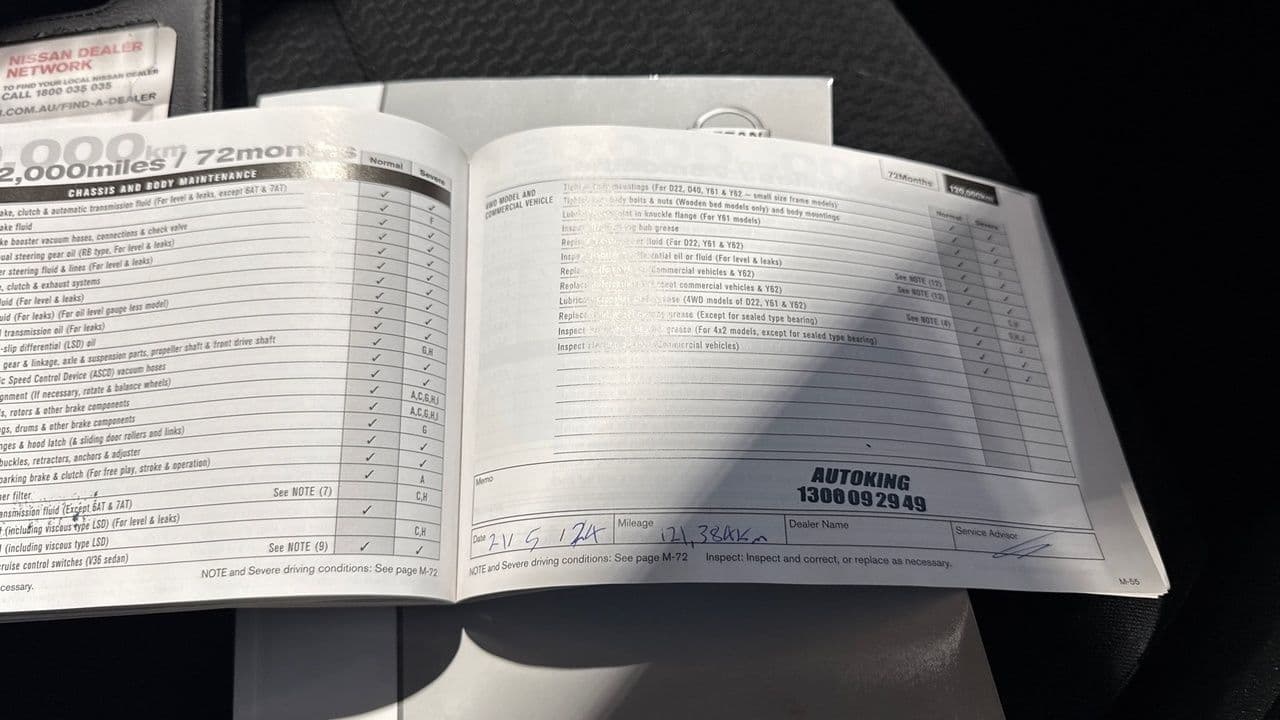 NISSAN DEALER
NETWORK
TO FIND YOUR LOCAL NISSAN DEALER
CALL 1800 035 035
.COM.AU/FIND-A-DEALER
,000km
2,000miles / 72months
Normal
Severe
CHASSIS AND BODY MAINTENANCE
ake, clutch & automatic transmission fluid (For level & leaks, except 6AT & 7AT) ✓ ✓
ake fluid ✓ F
ke booster vacuum hoses, connections & check valve ✓ ✓
ual steering gear oil (RB type, For level & leaks) ✓ ✓
er steering fluid & lines (For level & leaks) ✓ ✓
, clutch & exhaust systems ✓ ✓
luid (For level & leaks) ✓ ✓
uid (For leaks) (For oil level gauge less model) ✓ ✓
l transmission oil (For leaks) ✓ ✓
-slip differential (LSD) oil ✓ G,H
gear & linkage, axle & suspension parts, propeller shaft & front drive shaft ✓ ✓
ic Speed Control Device (ASCD) vacuum hoses ✓ ✓
gnment (If necessary, rotate & balance wheels) ✓ A,C,G,H,I
s, rotors & other brake components ✓ A,C,G,H,I
gs, drums & other brake components ✓ G
nges & hood latch (& sliding door rollers and links) ✓ ✓
buckles, retractors, anchors & adjuster ✓ ✓
parking brake & clutch (For free play, stroke & operation) ✓ A
ner filter See NOTE (7) C,H
ansmission fluid (Except 6AT & 7AT) ✓
(including viscous type LSD) (For level & leaks)
(including viscous type LSD) C,H
ruise control switches (V36 sedan) See NOTE (9) ✓ ✓
NOTE and Severe driving conditions: See page M-72
cessary.
72Months
120,000km
Normal
Severe
4WD MODEL AND
COMMERCIAL VEHICLE
mountings (For D22, D40, Y61 & Y62 – small size frame models)
body bolts & nuts (Wooden bed models only) and body mountings
in knuckle flange (For Y61 models)
hub grease
fluid (For D22, Y61 & Y62)
oil or fluid (For level & leaks)
Commercial vehicles & Y62) See NOTE (12)
commercial vehicles & Y62) See NOTE (13)
(4WD models of D22, Y61 & Y62)
grease (Except for sealed type bearing) See NOTE (4)
Inspect grease (For 4x2 models, except for sealed type bearing)
Inspect commercial vehicles)
Memo
AUTOKING
1300 092 949
Date 21/ 5 / 24
Mileage 121,384Km
Dealer Name
Service Advisor
NOTE and Severe driving conditions: See page M-72 Inspect: Inspect and correct, or replace as necessary.
M-55